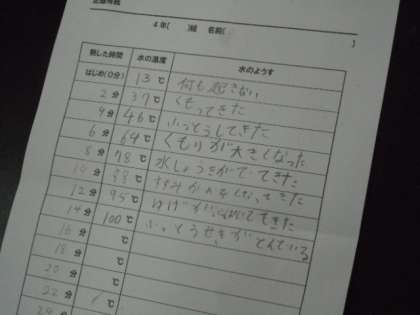 4年( )組 名前( )
熱した時間 水の温度 水のようす
はじめ(0分) 13℃ 何も起きない
2分 37℃ くもってきた
4分 46℃ ふっとうしてきた
6分 64℃ くもりが大きくなった
8分 78℃ 水じょうきがでてきた
10分 88℃
12分 95℃ ゆげが
14分 100℃ ふっとうせきがとんでいる
16分 ℃
18分 ℃
20分 ℃
22分 ℃
24分